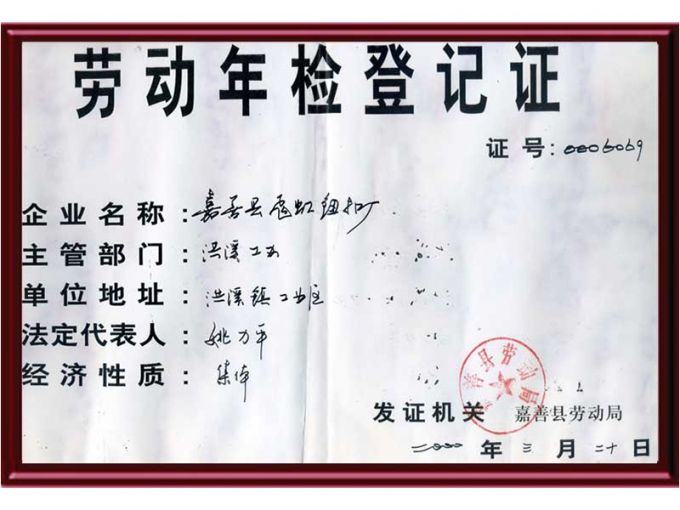 劳动年检登记证
证号:0006069
企业名称:嘉善县霓虹钮扣厂
主管部门:洪溪工办
单位地址:洪溪镇工业区
法定代表人:姚力平
经济性质:集体
嘉善县劳动局
发证机关 嘉善县劳动局
二000年三月二十日